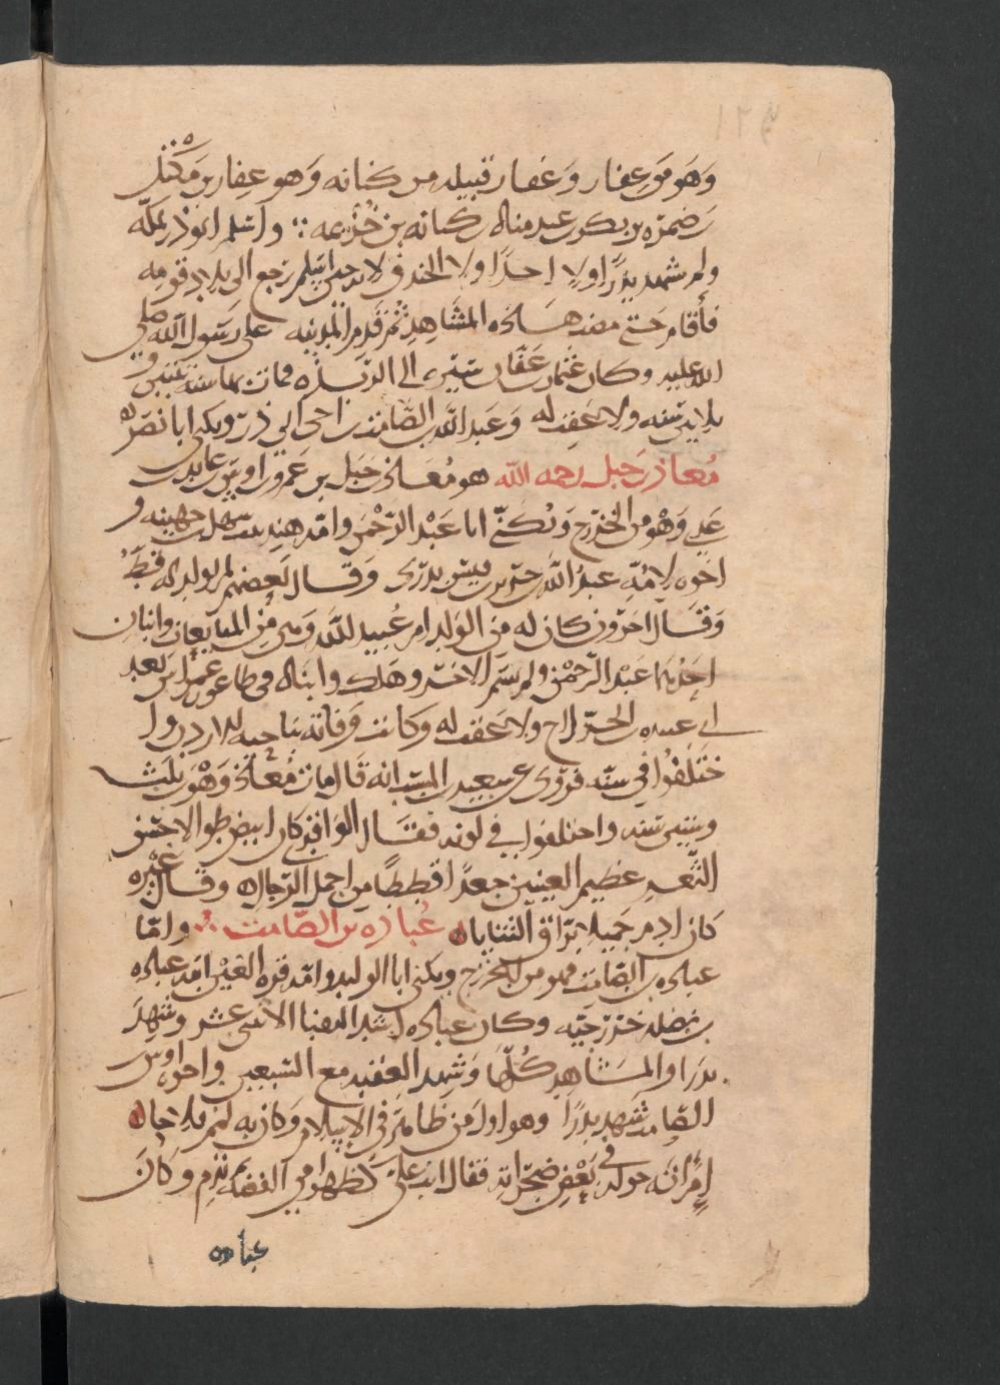 وهو من غفار وغفار قبيله من كنانه وهو غفار بن مليل
بن ضمره بن بكر بن عبد مناه بن كنانه بن خزيمه ∴ واسلم ابو ذر بمكه
ولم يشهد بدرا ولا احدا ولا الخندق لانه حين اسلم رجع الى بلاد قومه
فأقام حتى مضت هذه المشاهد ثم قدم المدينه على رسول الله صلى
الله عليه وكان عثمان بن عفان سيره الى الربذه فمات بها سنه اثنتين و
ثلاثين سنه ولا عقب له وعبد الله بن الصامت بن اخى ابى ذر ويكنى ابا نصر ه
معاذ بن جبل رحمه الله هو معاذ بن جبل بن عمرو بن اوس بن عايذ بن
عدى وهو من الخزرج ويكنى ابا عبد الرحمن وامه هند بنت سهل من جهينه و
اخوه لامه عبد الله بن جد بن قيس بدرى وقال بعضهم لم يولد له قط
وقال اخرون كان له من الولد ام عبد الله وهى من المبايعات وابنان
احدهما عبد الرحمن ولم يسم الاخر وهلك وابناه فى طاعون عمواس بعد
ابى عبيده بن الجراح ولا عقب له وكانت وفاته بناحيه الاردن وا
ختلفوا في سنه فروى عن سعيد بن المسيب انه قال مات معاذ وهو بن ثلث
وثلثين سنه واختلفوا في لونه فقال الواقدى كان ابيض طوالا حسن
الثغر عظيم العينين جعدا قططا من اجمل الرجال ه وقال غيره
كان ادم جميلا براق الثنايا ه عباده بن الصامت ∴ واما
عباده بن الصامت فهو من الخزرج ويكنى ابا الوليد وامه قره العين ابنه عباده
بن نضله خزرجيه وكان عباده احد النقبا الاثنى عشر وشهد
بدرا والمشاهد كلها وشهد العقبه مع السبعين واخوه اوس بن
الصامت شهد بدرا وهو اول من ظاهر فى الاسلام وكان به لمم فلاحا ه
امرأته خوله في بعض ضجراته فقال انت علي كظهر امي ثم ندم وكان
عباده